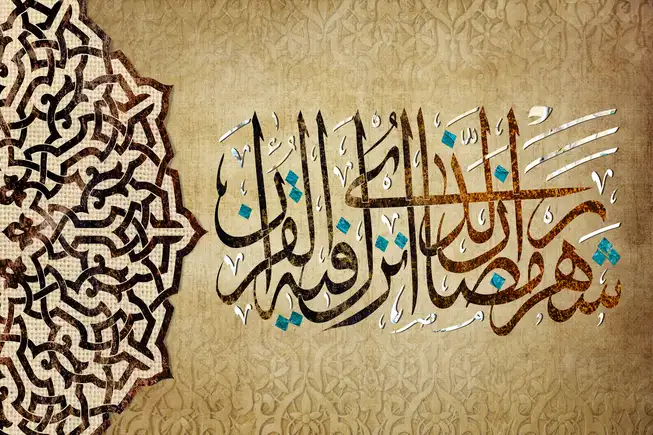 شهر رمضان الذي انزل فيه القرآن